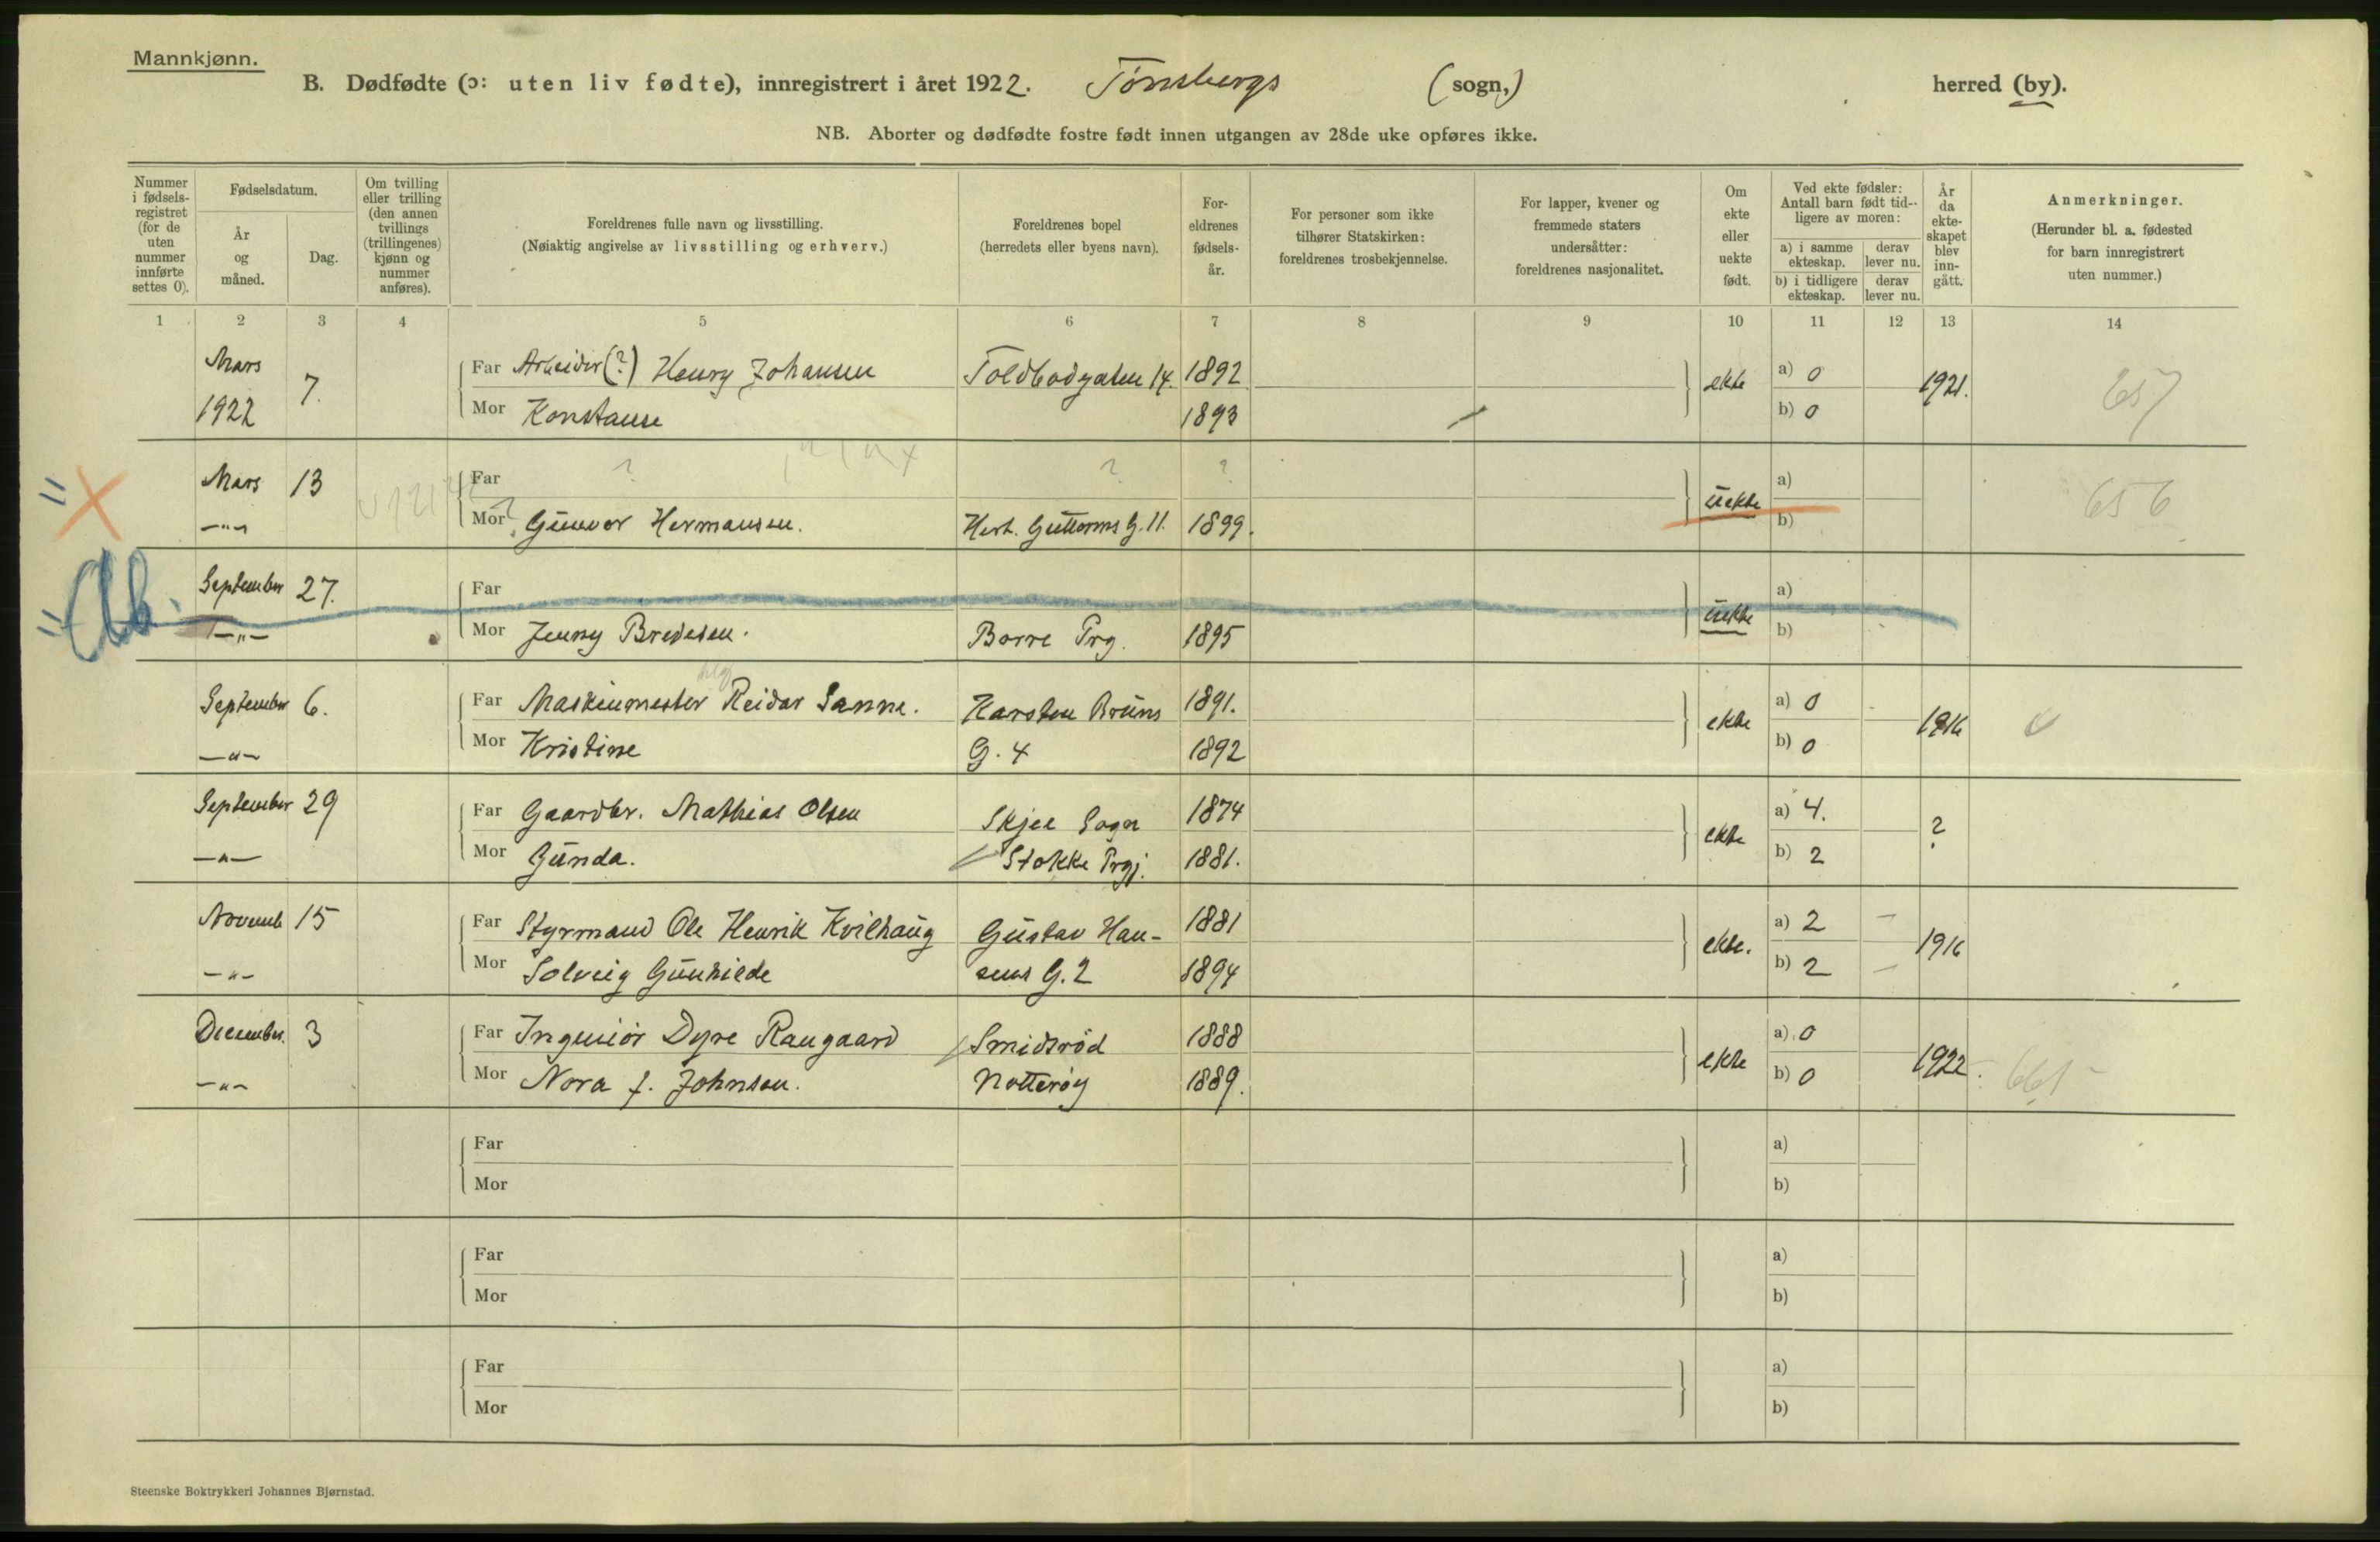 Mannkjønn.
B. Dødfødte (ɔ: uten liv fødte), innregistrert i året 1922. Tönsbergs (sogn,) herred (by).
NB. Aborter og dødfødte fostre født innen utgangen av 28de uke opføres ikke.
Nummer i fødsels-registret (for de uten nummer innførte settes 0).
Fødselsdatum.
År og måned.
Dag.
Om tvilling eller trilling (den annen tvillings (trillingenes) kjønn og nummer anføres).
Foreldrenes fulle navn og livsstilling.
(Nøiaktig angivelse av livsstilling og erhverv.)
Foreldrenes bopel
(herredets eller byens navn).
For-eldrenes fødsels-år.
For personer som ikke tilhører Statskirken: foreldrenes trosbekjennelse.
For lapper, kvener og fremmede staters undersåtter: foreldrenes nasjonalitet.
Om ekte eller uekte født.
Ved ekte fødsler: Antall barn født tid-ligere av moren:
a) i samme ekteskap. derav lever nu.
b) i tidligere ekteskap. derav lever nu.
År da ekte-skapet blev inn-gått.
Anmerkninger.
(Herunder bl. a. fødested for barn innregistrert uten nummer.)
1 2 3 4 5 6 7 8 9 10 11 12 13 14
Mars 7. Far Arbeider (?) Henry Johansen Toldbodgaten 14. 1892 ekte a) 0 1921. 657
1922 Mor Konstanse 1893 b) 0
Mars 13 Far ? ? ? uekte a) 656
—"— Mor Gunvor Hermansen. Hert. Guttorms G. 11. 1899. b)
Ab. September 27. Far uekte a)
—"— Mor Jenny Bredesen. Borre Prg. 1895 b)
September 6. Far Maskinmester Reidar Sanne. Karsten Bruns 1891. ekte a) 0 1916
—"— Mor Kristine G. 4 1892 b) 0
September 29 Far Gaardbr. Mathias Olsen Skjee Sogn 1874 ekte a) 4. ?
—"— Mor Gunda. Stokke Prgj. 1881. b) 2
Novemb 15 Far Styrmand Ole Henrik Kvilhaug Gustav Han- 1881 ekte. a) 2 — 1916
—"— Mor Solveig Gunhilde sens G. 2 1894 b) 2 —
December. 3 Far Ingeniör Dyre Rangaard Smidsröd 1888 ekte a) 0 1922. 661
—"— Mor Nora f. Johnsen. Nötteröy 1889. b) 0
Far a)
Mor b)
Far a)
Mor b)
Far a)
Mor b)
Steenske Boktrykkeri Johannes Bjørnstad.